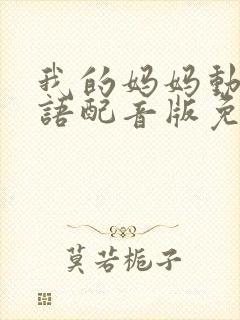 我的妈妈動
語配音版免
莫若栀子